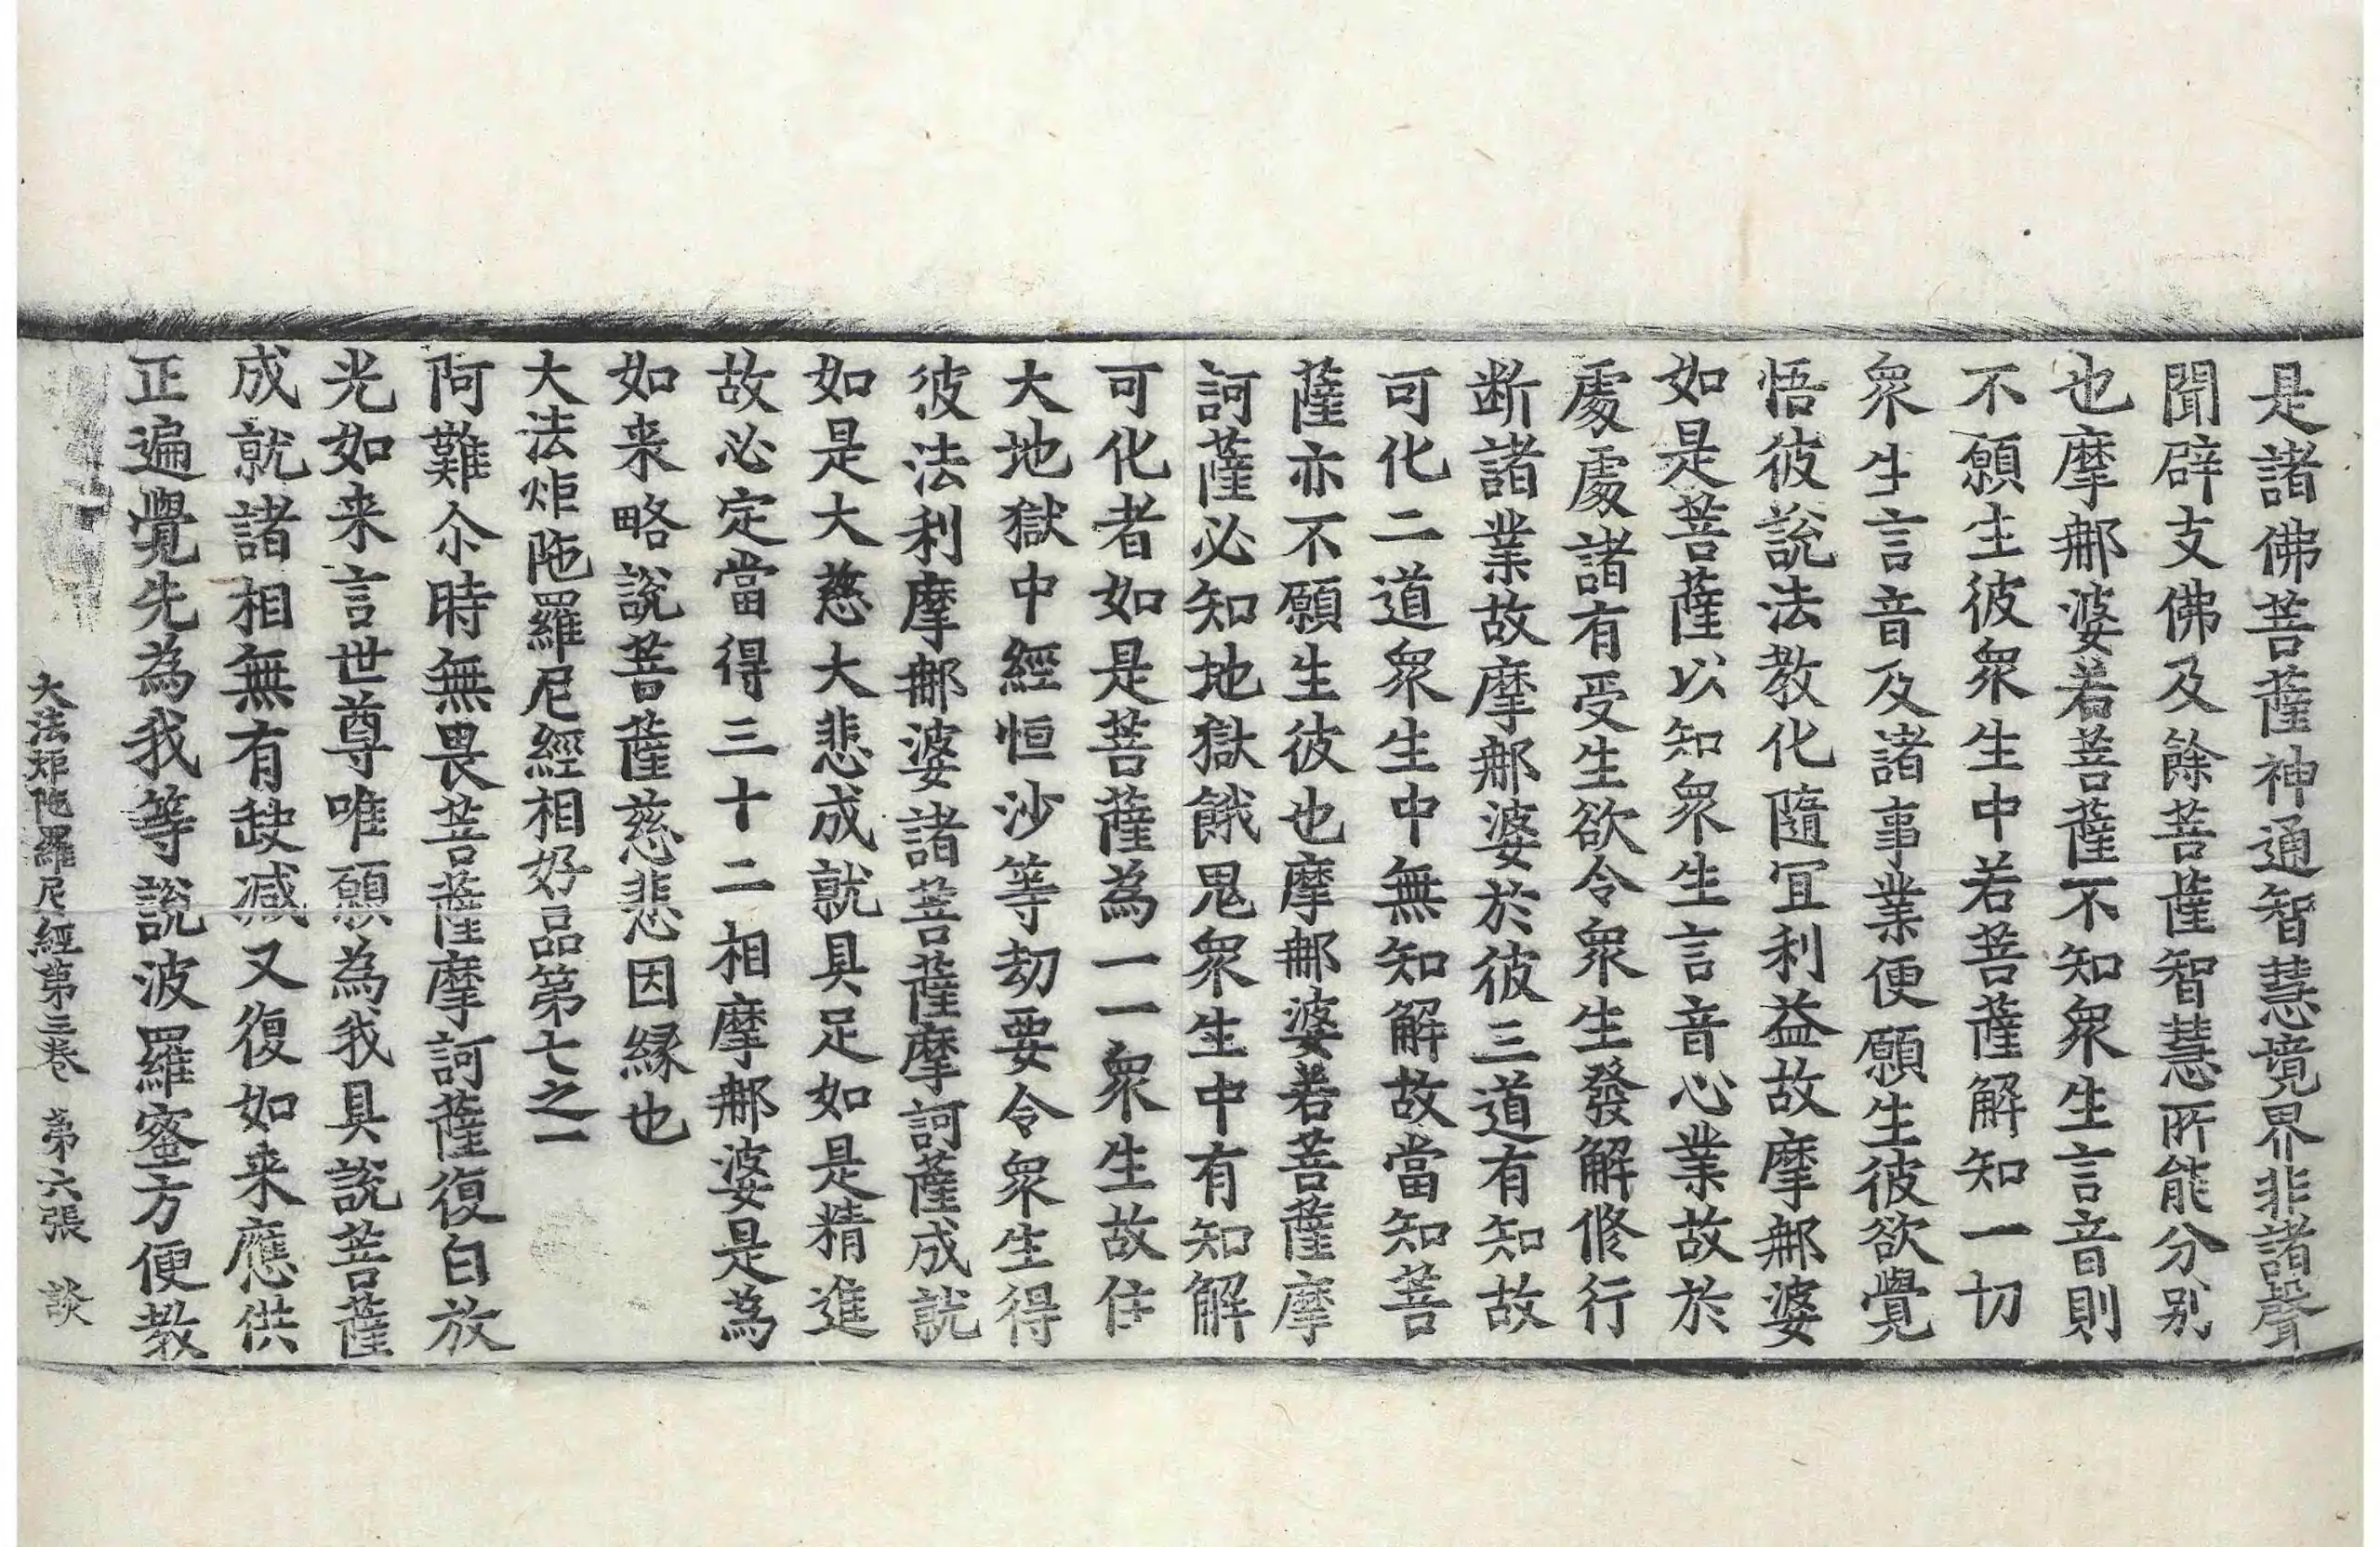 是諸佛菩薩神通智慧境界非諸聲
聞辟支佛及餘菩薩智慧所能分别
也摩那婆若菩薩不知眾生言音則
不願生彼眾生中若菩薩解知一切
眾生言音及諸事業便願生彼欲覺
悟彼說法教化隨宜利益故摩那婆
如是菩薩以知眾生言音心業故於
處處諸有受生欲令眾生發解修行
断諸業故摩那婆於彼三道有知故
可化二道眾生中無知解故當知菩
薩亦不願生彼也摩那婆若菩薩摩
訶薩必知地獄餓鬼眾生中有知解
可化者如是菩薩為一一眾生故住
大地獄中經恒沙等劫要令眾生得
彼法利摩那婆諸菩薩摩訶薩成就
如是大慈大悲成就具足如是精進
故必定當得三十二相摩那婆是為
如来略說菩薩慈悲因緣也
大法炬陁羅尼經相好品第七之一
阿難尒時無畏菩薩摩訶薩復白放
光如来言世尊唯願為我具說菩薩
成就諸相無有缺减又復如来應供
正遍覺先為我等說波羅蜜方便教
大法炬陁羅尼經第三卷 第六張 談